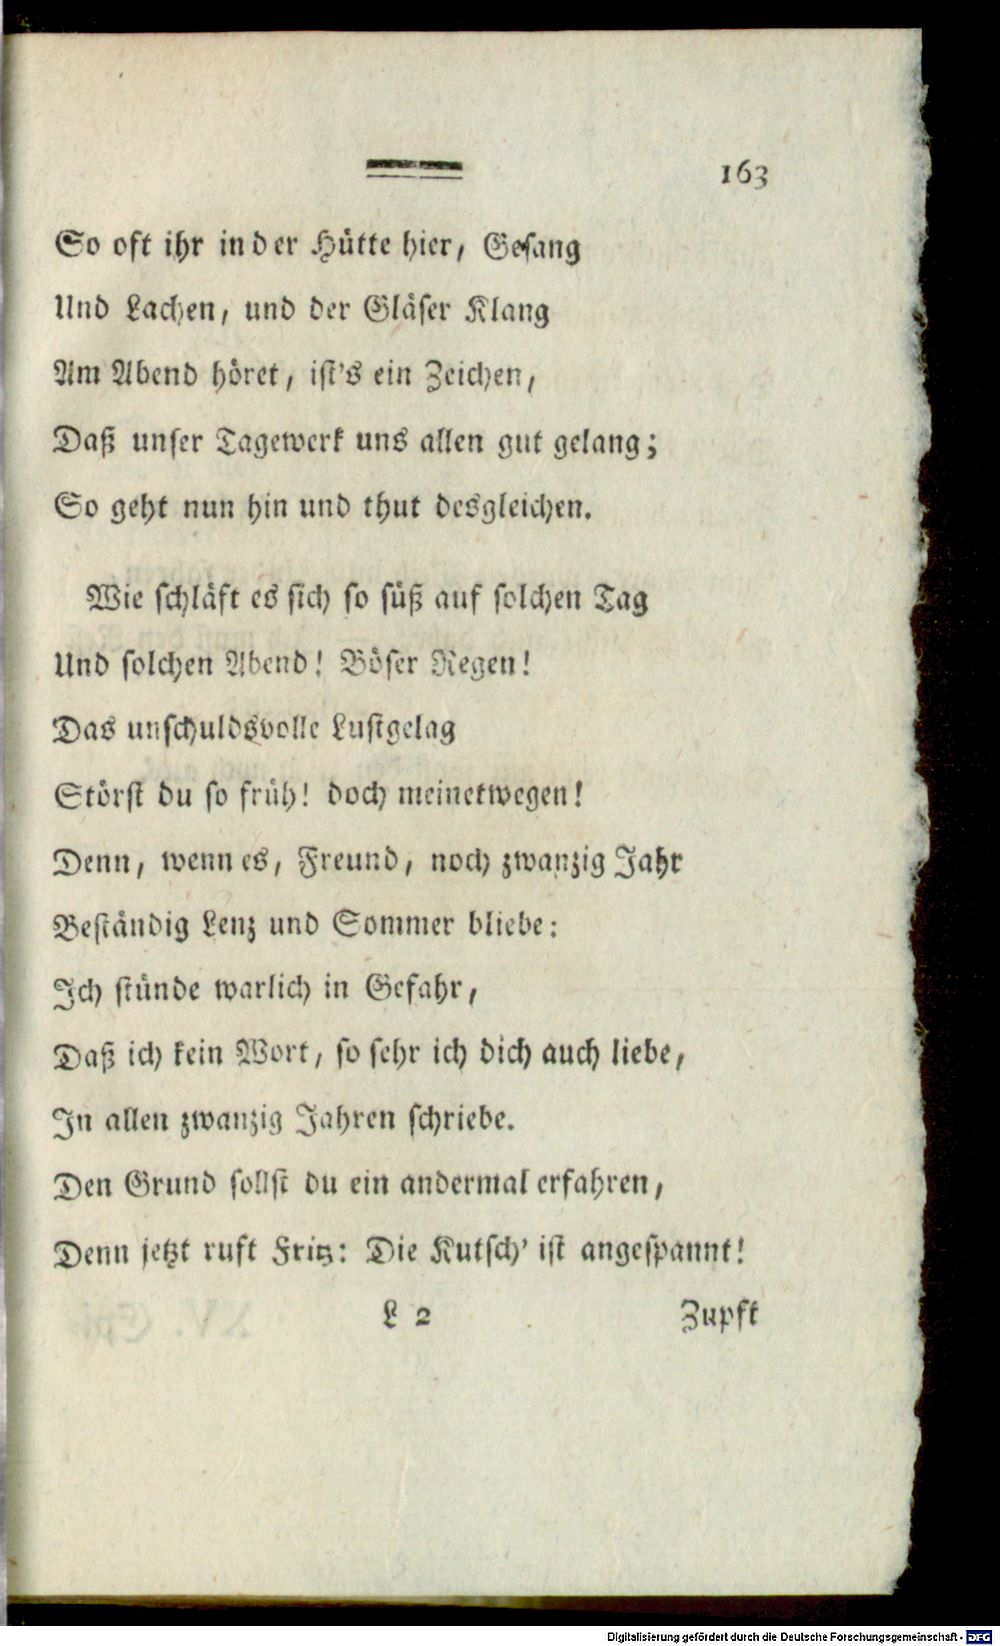 163
So oft ihr in der Hütte hier, Gesang
Und Lachen, und der Gläser Klang
Am Abend höret, ist's ein Zeichen,
Daß unser Tagewerk uns allen gut gelang;
So geht nun hin und thut desgleichen.
Wie schläft es sich so süß auf solchen Tag
Und solchen Abend! Böser Regen!
Das unschuldsvolle Lustgelag
Störst du so früh! doch meinetwegen!
Denn, wenn es, Freund, noch zwanzig Jahr
Beständig Lenz und Sommer bliebe:
Ich stünde warlich in Gefahr,
Daß ich kein Wort, so sehr ich dich auch liebe,
In allen zwanzig Jahren schriebe.
Den Grund sollst du ein andermal erfahren,
Denn jetzt ruft Fritz: Die Kutsch' ist angespannt!
L 2 Zupft
Digitalisierung gefördert durch die Deutsche Forschungsgemeinschaft - DFG